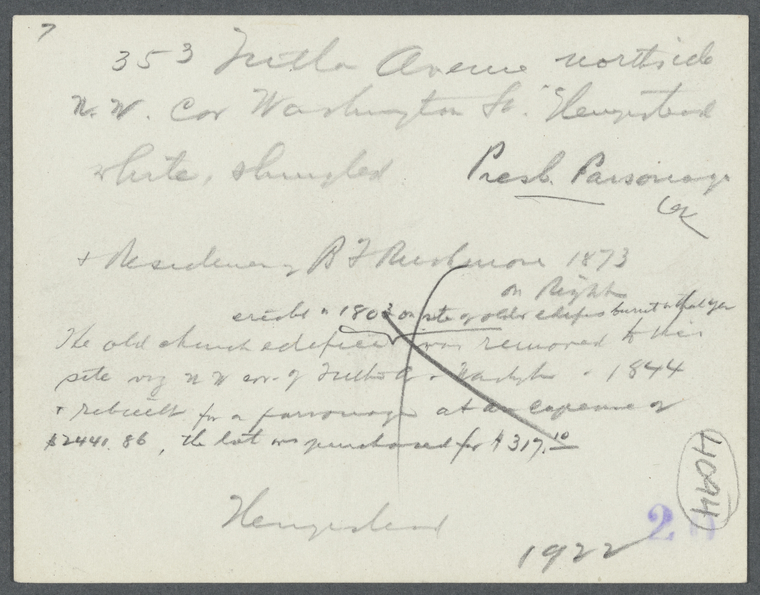 7
353 Fulton Avenue northside
N.W. cor Washington St. Hempstead
white, shingled Presb. Parsonage
+ Residence of B F Rushmore 1873
on Right
erected in 1803 on site of older edifice burnt in that year
The old church edifice was removed to this
site viz N W cor. of Fulton & Washgtn in 1844
+ rebuilt for a parsonage at an expense of
$2441.86, the lot was purchased for $317.10
Hempstead
1922
4094